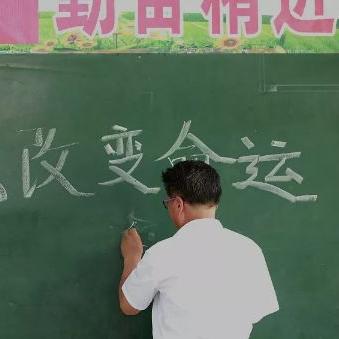 勤奋精进
改变命运